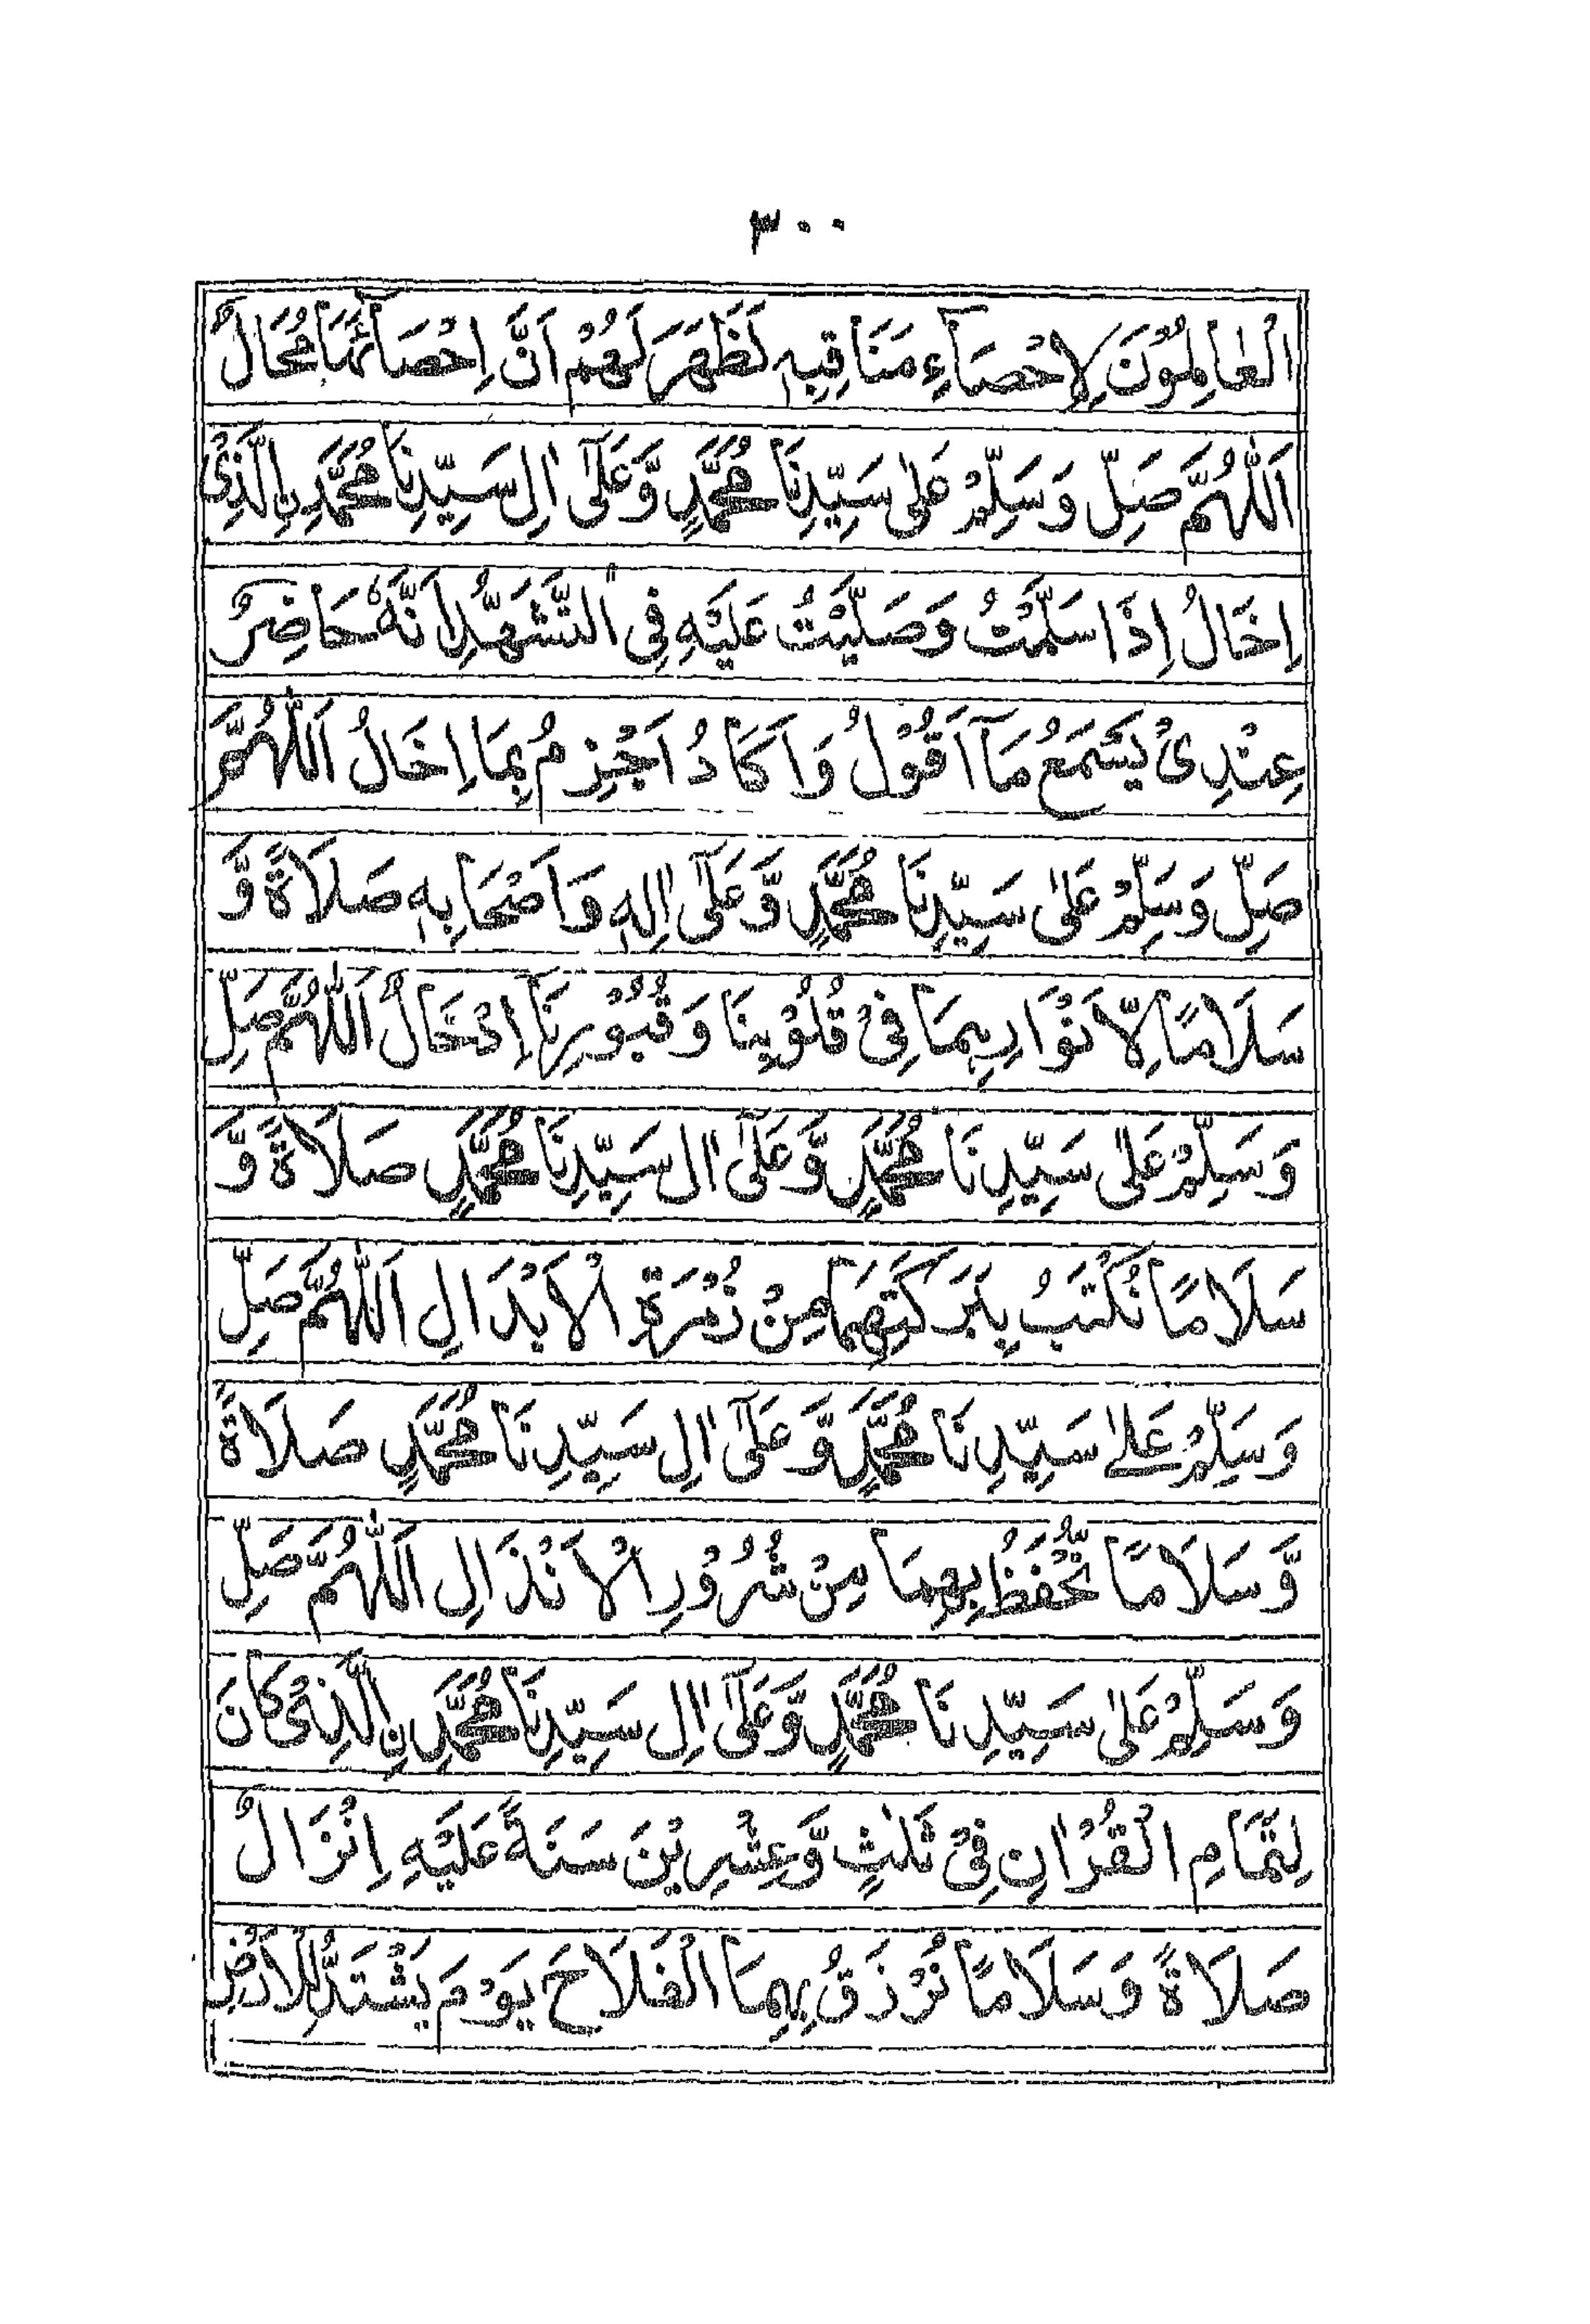 ٣٠٠
الْعَالِمُوْنَ لِاِحْصَآءِ مَنَاقِبِهٖ لَظَهَرَ لَهُمْ اَنَّ اِحْصَآئَهَا مُحَالٌ
اَللّٰهُمَّ صَلِّ وَسَلِّمْ عَلٰى سَيِّدِنَا مُحَمَّدٍ وَّعَلٰٓى اٰلِ سَيِّدِنَا مُحَمَّدِنِ الَّذِىْ
اِخَالُ اِذَا سَلَّمْتُ وَصَلَّيْتُ عَلَيْهِ فِى التَّشَهُّدِ لِاَنَّهٗ حَاضِرٌ
عِنْدِىْ يَسْمَعُ مَآ اَقُوْلُ وَاَكَادُ اَجْزِمُ بِمَا اِخَالُ اَللّٰهُمَّ
صَلِّ وَسَلِّمْ عَلٰى سَيِّدِنَا مُحَمَّدٍ وَّعَلٰٓى اٰلِهٖ وَاَصْحَابِهٖ صَلَاةً وَّ
سَلَامًا لِّاَنْوَارِهِمَا فِىْ قُلُوْبِنَا وَقُبُوْرِنَآ اِدْخَالٌ اَللّٰهُمَّ صَلِّ
وَسَلِّمْ عَلٰى سَيِّدِنَا مُحَمَّدٍ وَّعَلٰٓى اٰلِ سَيِّدِنَا مُحَمَّدٍ صَلَاةً وَّ
سَلَامًا نُكْتَبُ بِبَرَكَتِهِمَا مِنْ زُمْرَةِ الْاَبْدَالِ اَللّٰهُمَّ صَلِّ
وَسَلِّمْ عَلٰى سَيِّدِنَا مُحَمَّدٍ وَّعَلٰٓى اٰلِ سَيِّدِنَا مُحَمَّدٍ صَلَاةً
وَّسَلَامًا نُّحْفَظُ بِهِمَا مِنْ شُرُوْرِ الْاَنْذَالِ اَللّٰهُمَّ صَلِّ
وَسَلِّمْ عَلٰى سَيِّدِنَا مُحَمَّدٍ وَّعَلٰٓى اٰلِ سَيِّدِنَا مُحَمَّدِنِ الَّذِىْ كَانَ
لِتَمَامِ الْقُرْاٰنِ فِىْ ثَلٰثٍ وَّعِشْرِيْنَ سَنَةً عَلَيْهِ اِنْزَالٌ
صَلَاةً وَسَلَامًا نُرْزَقُ بِهِمَا الْفَلَاحَ يَوْمَ يَشْتَدُّ لِلْاَرْضِ